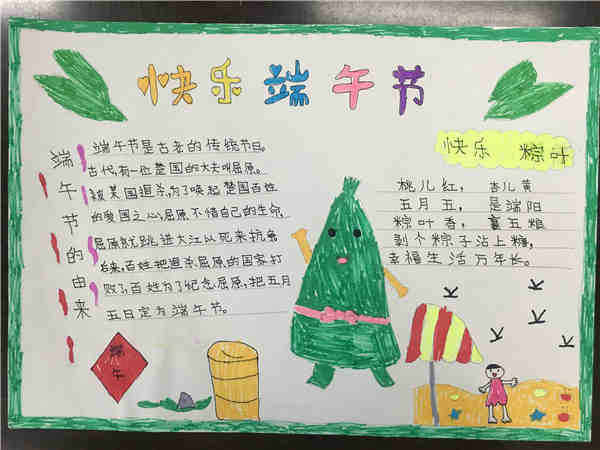 快乐端午节
端午节的由来
端午节是古老的传统节日。
古代,有一位楚国的大夫叫屈原。
被某国追杀,为了唤起楚国百姓
的爱国之心,屈原不惜自己的生命,
屈原就跳进大江以死来抗争
后来,百姓把追杀屈原的国家打
败了,百姓为了纪念屈原,把五月
五日定为端午节。
快乐 粽叶
桃儿红, 杏儿黄
五月五, 是端阳
粽叶香, 裹五粮
剥个粽子沾上糖,
幸福生活万年长。
端午